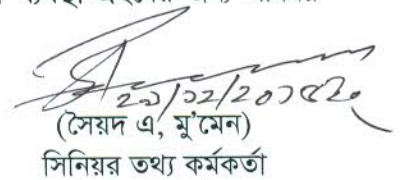 ২১/১২/২০১৫ইং
(সৈয়দ এ, মু'মেন)
সিনিয়র তথ্য কর্মকর্তা